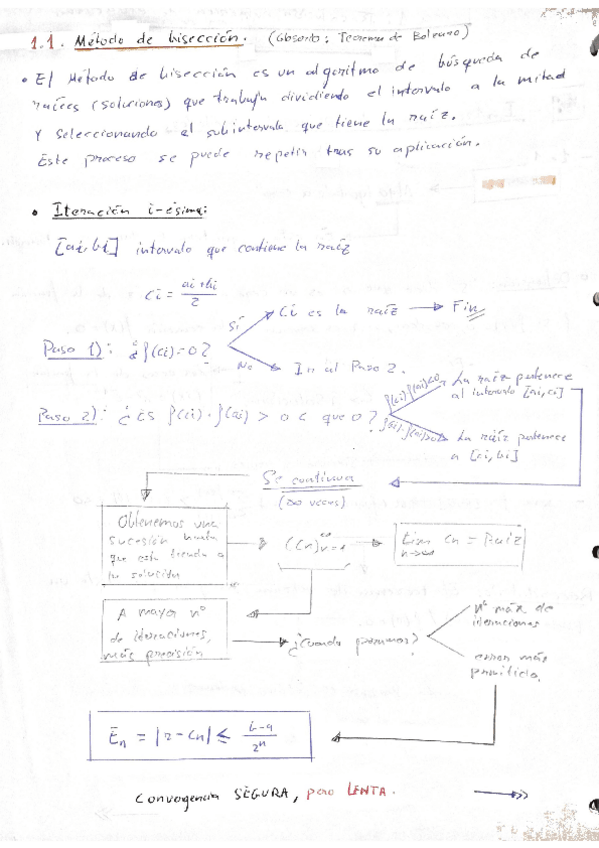 1.1. Método de bisección. (Gbsorto: Teorema de Bolzano)
• El Método de bisección es un algoritmo de búsqueda de
raíces (soluciones) que trabaja dividiendo el intervalo a la mitad
y seleccionando el subintervalo que tiene la raíz.
Este proceso se puede repetir tras su aplicación.
• Iteración i-ésima:
[ai, bi] intervalo que contiene la raíz
ci = ai+bi / 2
Paso 1): ¿f(ci)=0?
Sí
Ci es la raíz → Fin
No
Ir al Paso 2.
Paso 2): ¿Es f(ci)·f(ai) > o < que 0?
f(ci)·f(ai)<0
La raíz pertenece
al intervalo [ai, ci]
f(ci)·f(ai)>0
La raíz pertenece
a [ci, bi]
Se continua
(∞ veces)
Obtenemos una
sucesión
que esta tiende a
la solución
(Cn)∞n=1
lim Cn = Raíz
n→∞
A mayor nº
de iteraciones,
más precisión
¿Cuando paramos?
nº máx de
iteraciones
error máx
permitido.
En = |r - Cn| ≤ b-a / 2ⁿ
Convergencia SEGURA, pero LENTA.